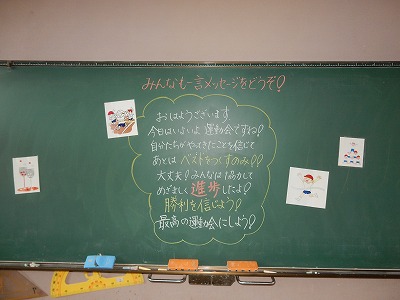 みんなも一言メッセージをどうぞ!
おはようございます
今日はいよいよ運動会ですね!
自分たちがやってきたことを信じて
あとはベストをつくすのみ!!
大丈夫!みんなは協力して
めざましく進歩したよ!
勝利を信じよう!
最高の運動会にしよう!